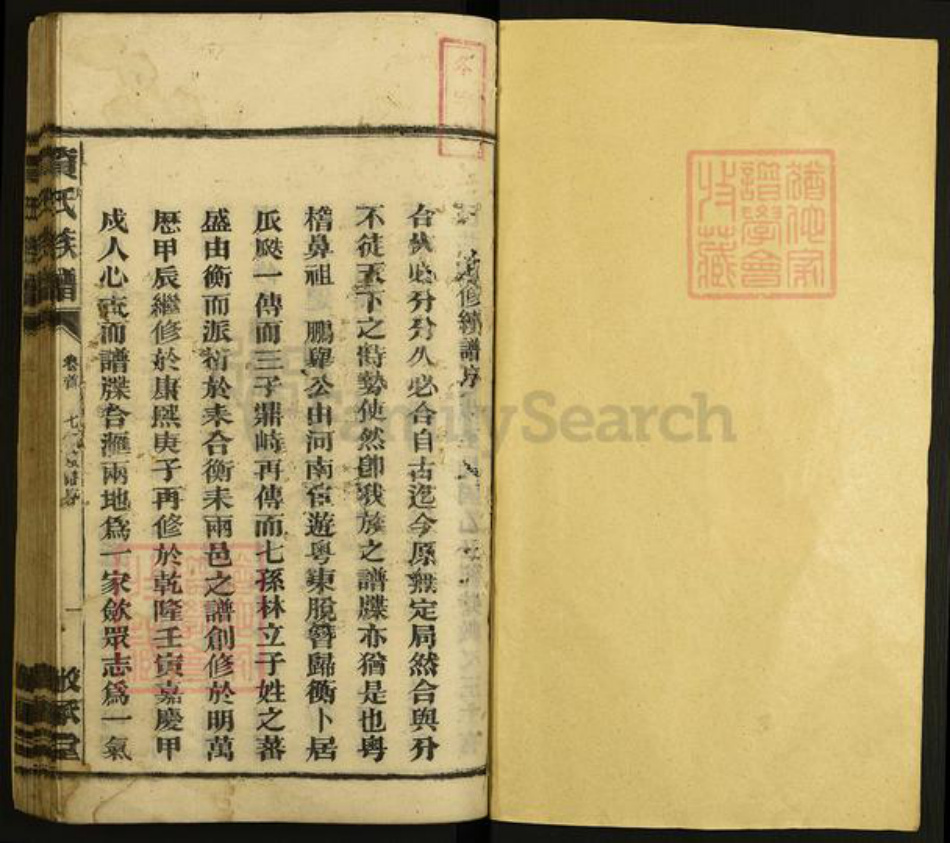 修續譜序
合久必分分久必合自古迄今原無定局然合與分
不徒天下之時勢使然卽我族之譜牒亦猶是也粤
稽鼻祖 鵬舉公由河南官遊粤東脫簪歸衡卜居
瓜瓞一傳而三子鼎峙再傳而七孫林立子姓之蕃
盛由衡而派衍於耒合衡耒兩邑之譜創修於明萬
歷甲辰繼修於康熙庚子再修於乾隆壬寅嘉慶甲
戌人心宂而譜牒合滙兩地爲一家斂眾志爲一氣
氏族譜
卷首
一
堂
譜學會
收藏
FamilySearch